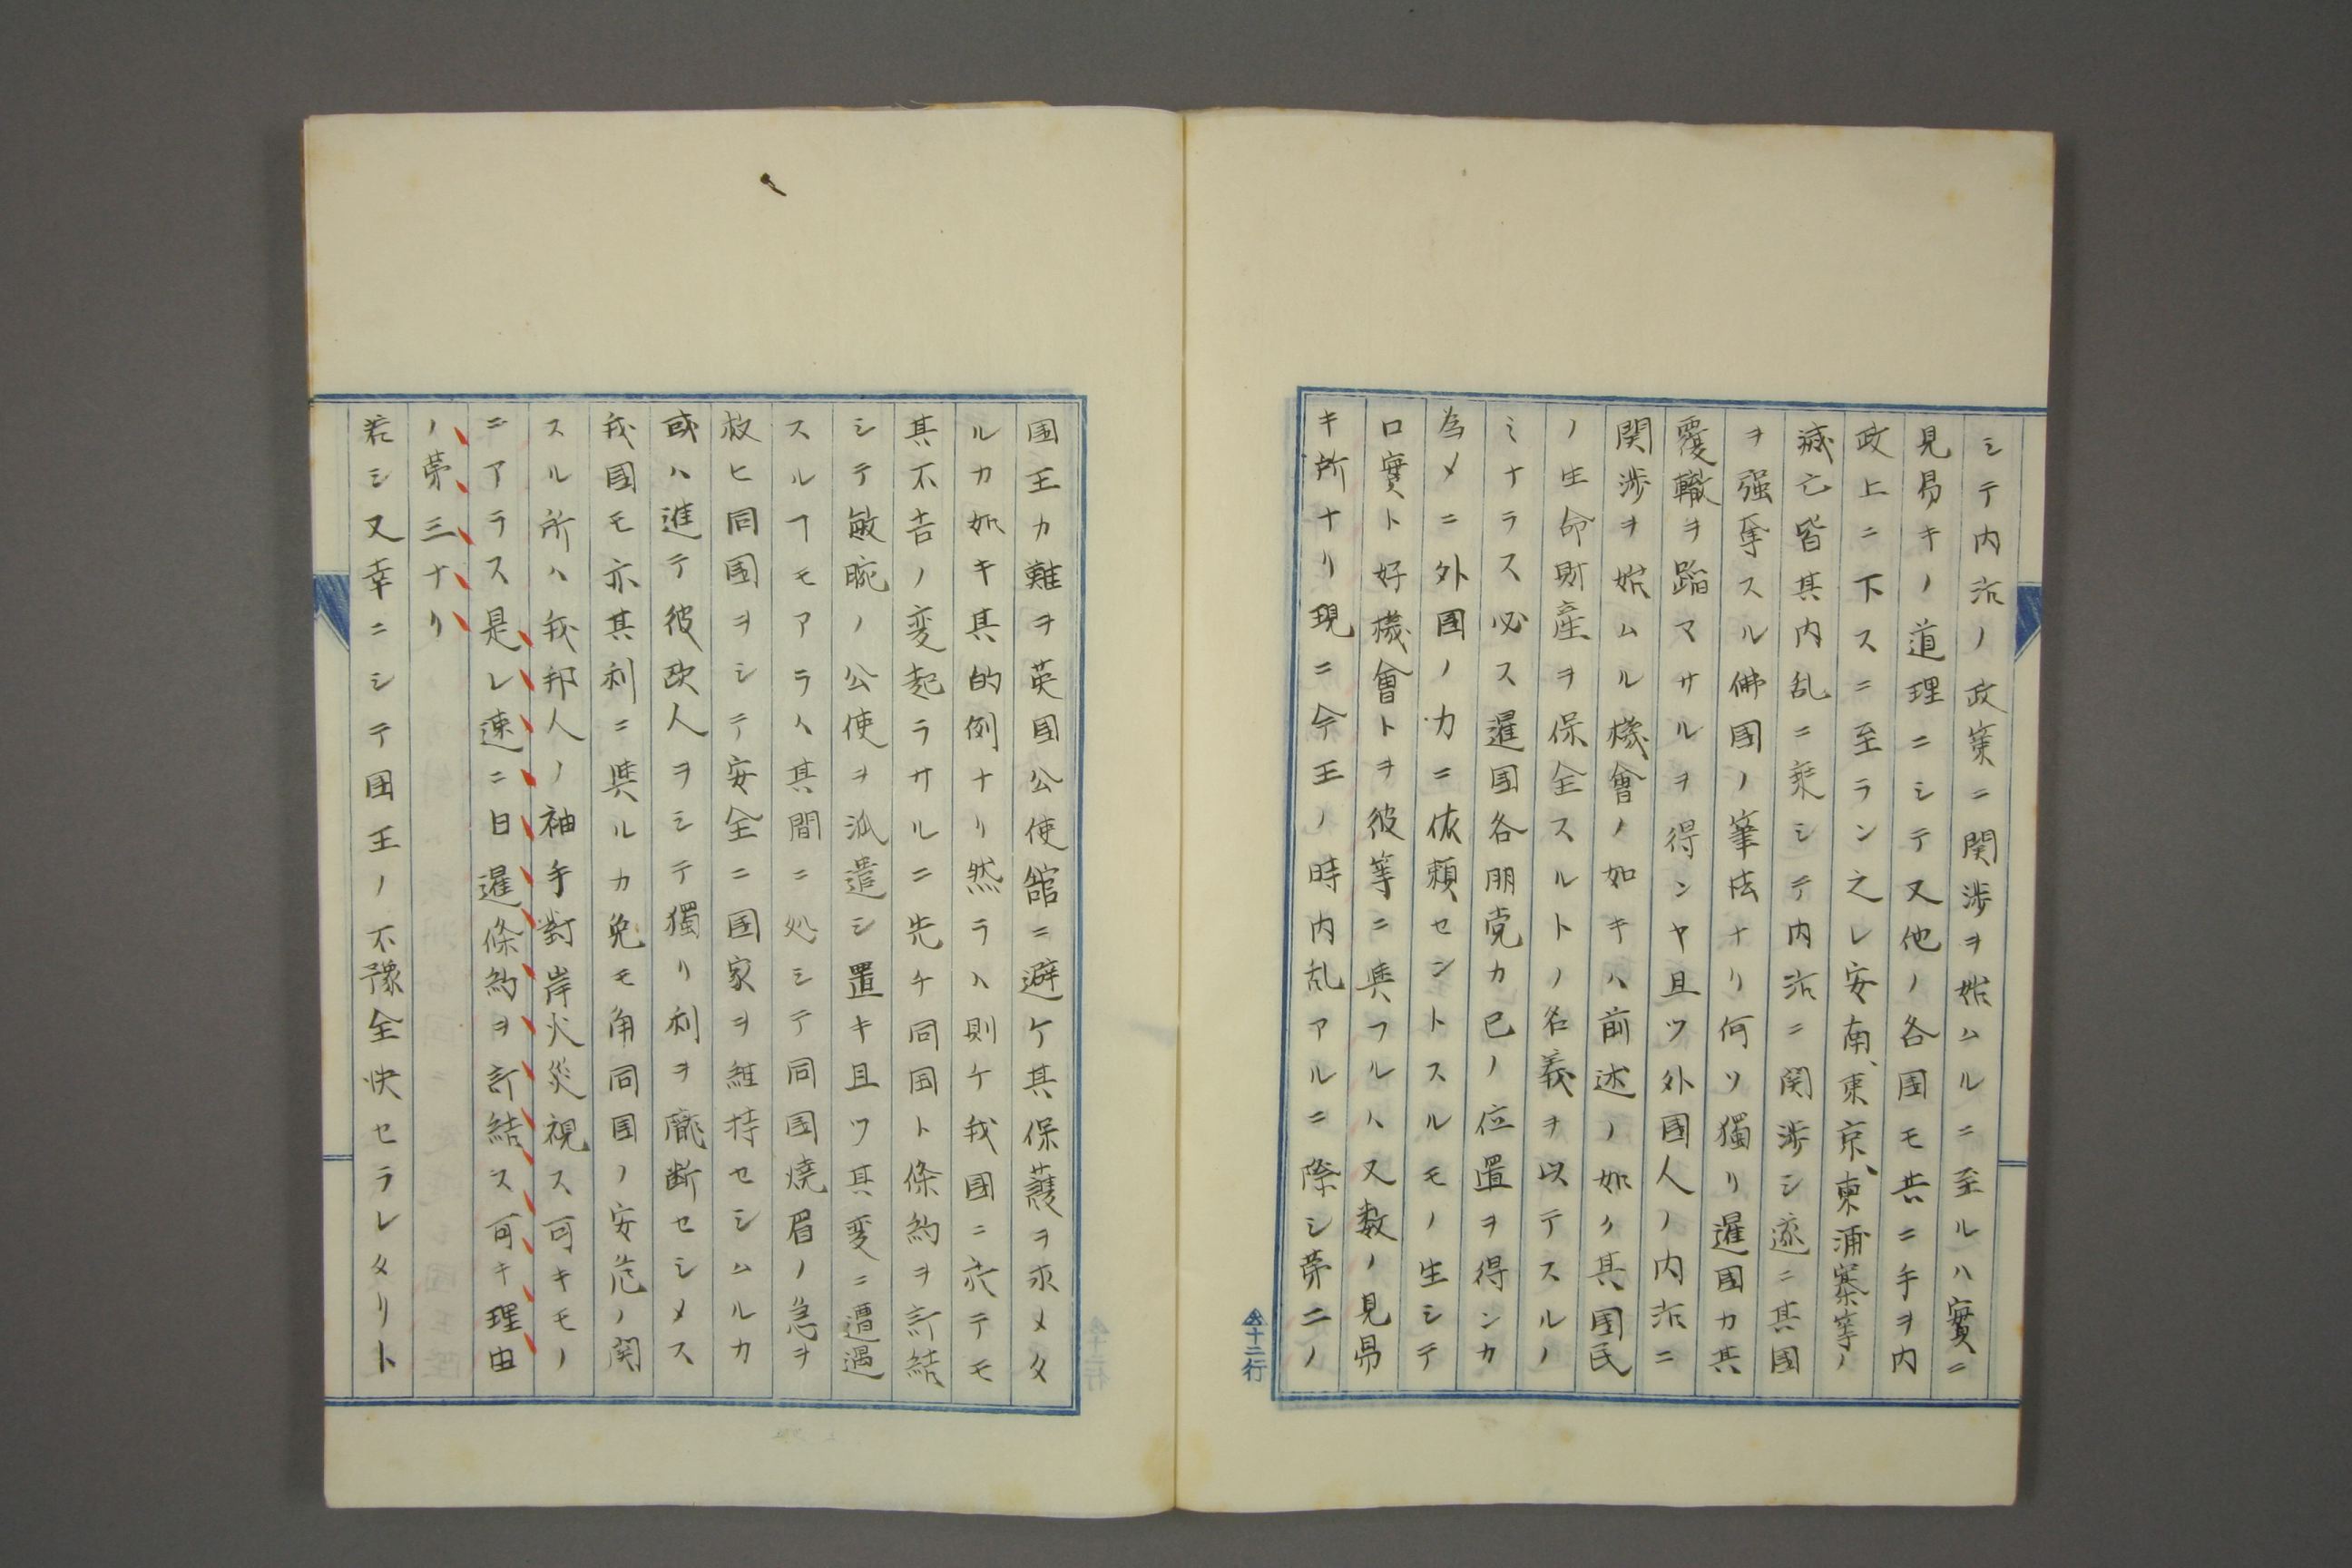 シテ内治ノ政策ニ関渉ヲ始ムルニ至ルハ實ニ
見易キノ道理ニシテ又他ノ各国モ共ニ手ヲ内
政上ニ下スニ至ラン之レ安南、東京、柬浦寨等ノ
滅亡皆其内乱ニ乗シテ内治ニ関渉シ遂ニ其国
ヲ強奪スル佛国ノ筆法ナリ何ソ獨リ暹国カ其
覆轍ヲ蹈マサルヲ得ンヤ且ツ外国人ノ内治ニ
関渉ヲ始ムル機會ノ如キハ前述ノ如ク其国民
ノ生命財産ヲ保全スルトノ名義ヲ以テスルノ
ミナラス必ス暹国各朋党カ己ノ位置ヲ得ンカ
為メニ外国ノ力ニ依頼セントスルモノ生シテ
口實ト好機會トヲ彼等ニ與フルハ又数ノ見易
キ所ナリ現ニ今王ノ時内乱アルニ際シ第二ノ
仝十二行
国王カ難ヲ英国公使舘ニ避ケ其保護ヲ求メタ
ルカ如キ其的例ナリ然ラハ則ケ我国ニ於テモ
其不吉ノ変起ラサルニ先チ同国ト條約ヲ訂結
シテ敏腕ノ公使ヲ派遣シ置キ且ツ其変ニ遭遇
スルヿモアラハ其間ニ処シテ同国焼眉ノ急ヲ
救ヒ同国ヲシテ安全ニ国家ヲ維持セシムルカ
或ハ進テ彼欧人ヲシテ獨リ利ヲ廰断セシメス
我國モ亦其利ニ與ルカ兔モ角同国ノ安危ノ関
スル所ハ我邦人ノ袖手對岸火災視ス可キモノ
ニアラス是レ速ニ日暹條約ヲ訂結ス可キ理由
ノ第三ナリ
若シ又幸ニシテ国王ノ不豫全快セラレタリト